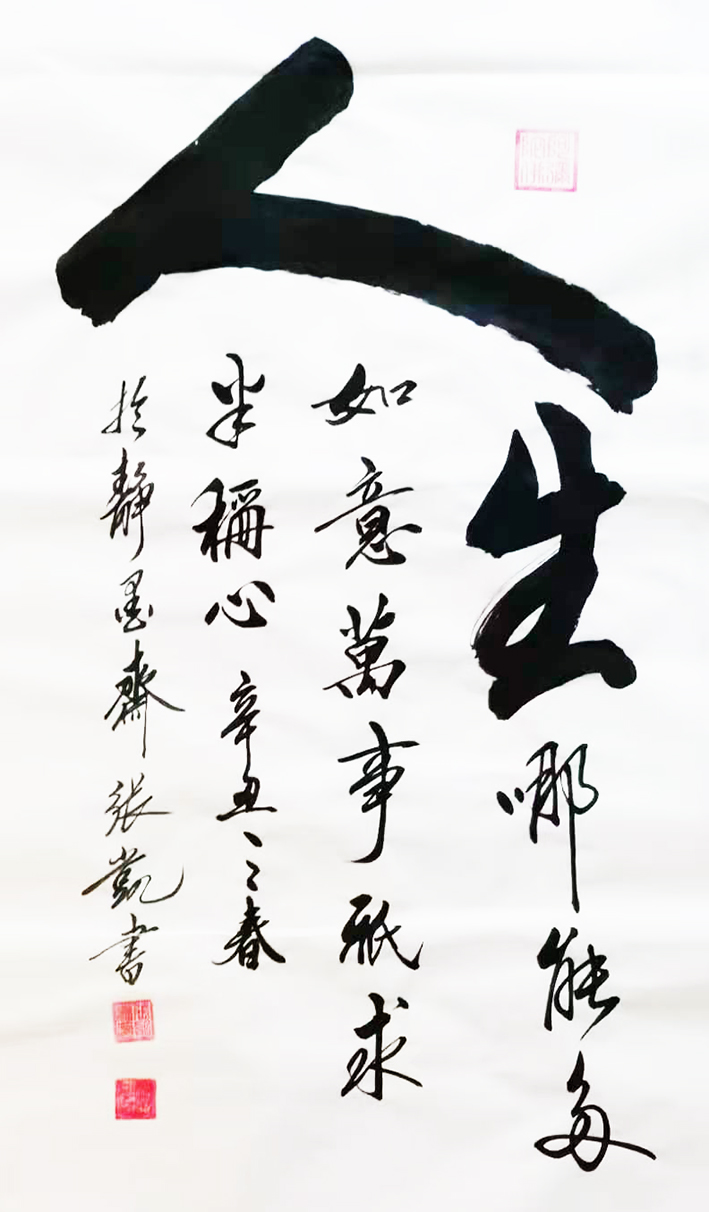 人生哪能多
如意萬事祇求
半稱心 辛丑之春
於靜墨齋 張凱書